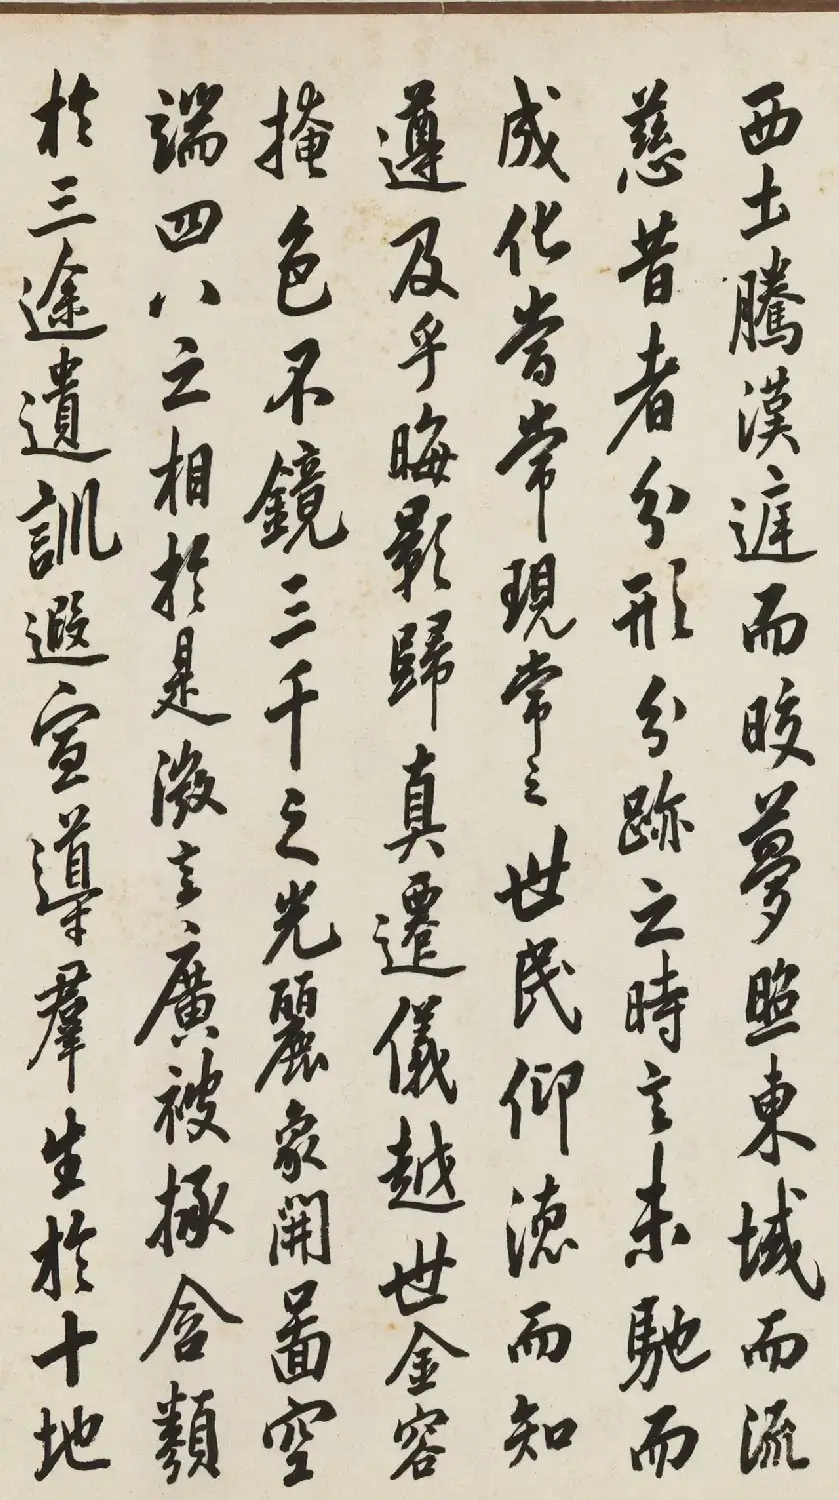 西土騰漢庭而皎夢照東域而流
慈昔者分形分跡之時言未馳而
成化當常現常之世民仰德而知
遵及乎晦影歸真遷儀越世金容
掩色不鏡三千之光麗象開圖空
端四八之相於是微言廣被拯含類
於三途遺訓遐宣導群生於十地